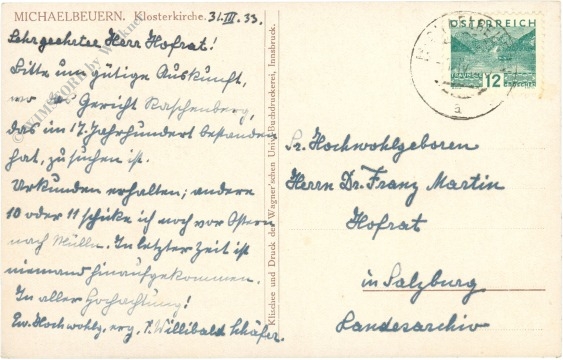 MICHAELBEUERN. Klosterkirche. 31.III.33.
Sehrgeehrter Herr Hofrat!
Bitte um gütige Auskunft,
wo das Gericht Raschenberg,
das im 17. Jahrhundert bestanden
hat, zu suchen ist.
Urkunden erhalten; andere
10 oder 11 schicke ich noch vor Ostern
nach Mülln. In letzter Zeit ist
niemand hinaufgekommen.
In aller Hochachtung!
Ew. Hochwohlg. erg. P. Willibald Schäfer.
Klischee und Druck der Wagner'schen Univ.-Buchdruckerei, Innsbruck.
ÖSTERREICH
12
GROSCHEN
Sr. Hochwohlgeboren
Herrn Dr. Franz Martin
Hofrat
in Salzburg
Landesarchiv